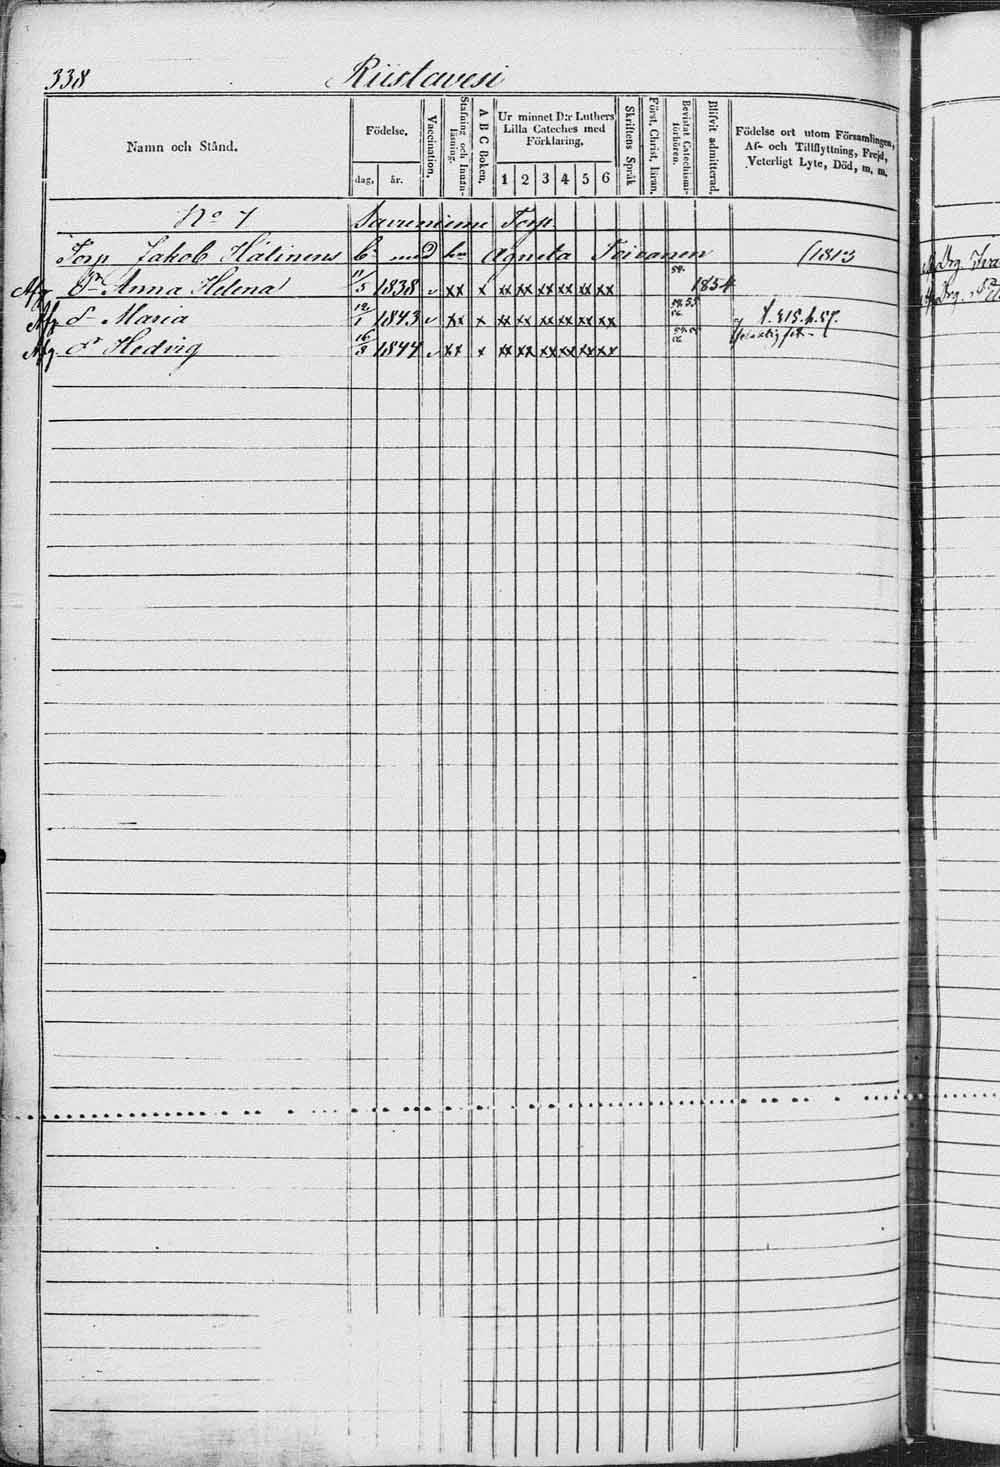 338 Riistavesi
Namn och Stånd.
Födelse,
dag, år.
Vaccination.
Stafning och Innan-läsning.
A B C Boken.
Ur minnet D:r Luthers
Lilla Cateches med
Förklaring,
1 2 3 4 5 6
Skriftens Språk
Först. Christ. läran.
Bevistat Catechismi förhören.
Blifvit admitterad.
Födelse ort utom Församlingen,
Af- och Tillflyttning, Frejd,
Veterligt Lyte, Död, m, m.
No 7 Savuniemi Torp
Torp Jakob Hälinens B. med hu Agneta Toivanen (1813
Afg Dr Anna Helena 11/5 1838 v xx x xx xx xx xx xx xx 54. 1854
Afg d Maria 12/1 1843 v xx x xx xx xx xx xx xx f. 315. h. 57.
Afg. dr Hedvig 16/3 1844 v xx x xx xx xx xx xx xx